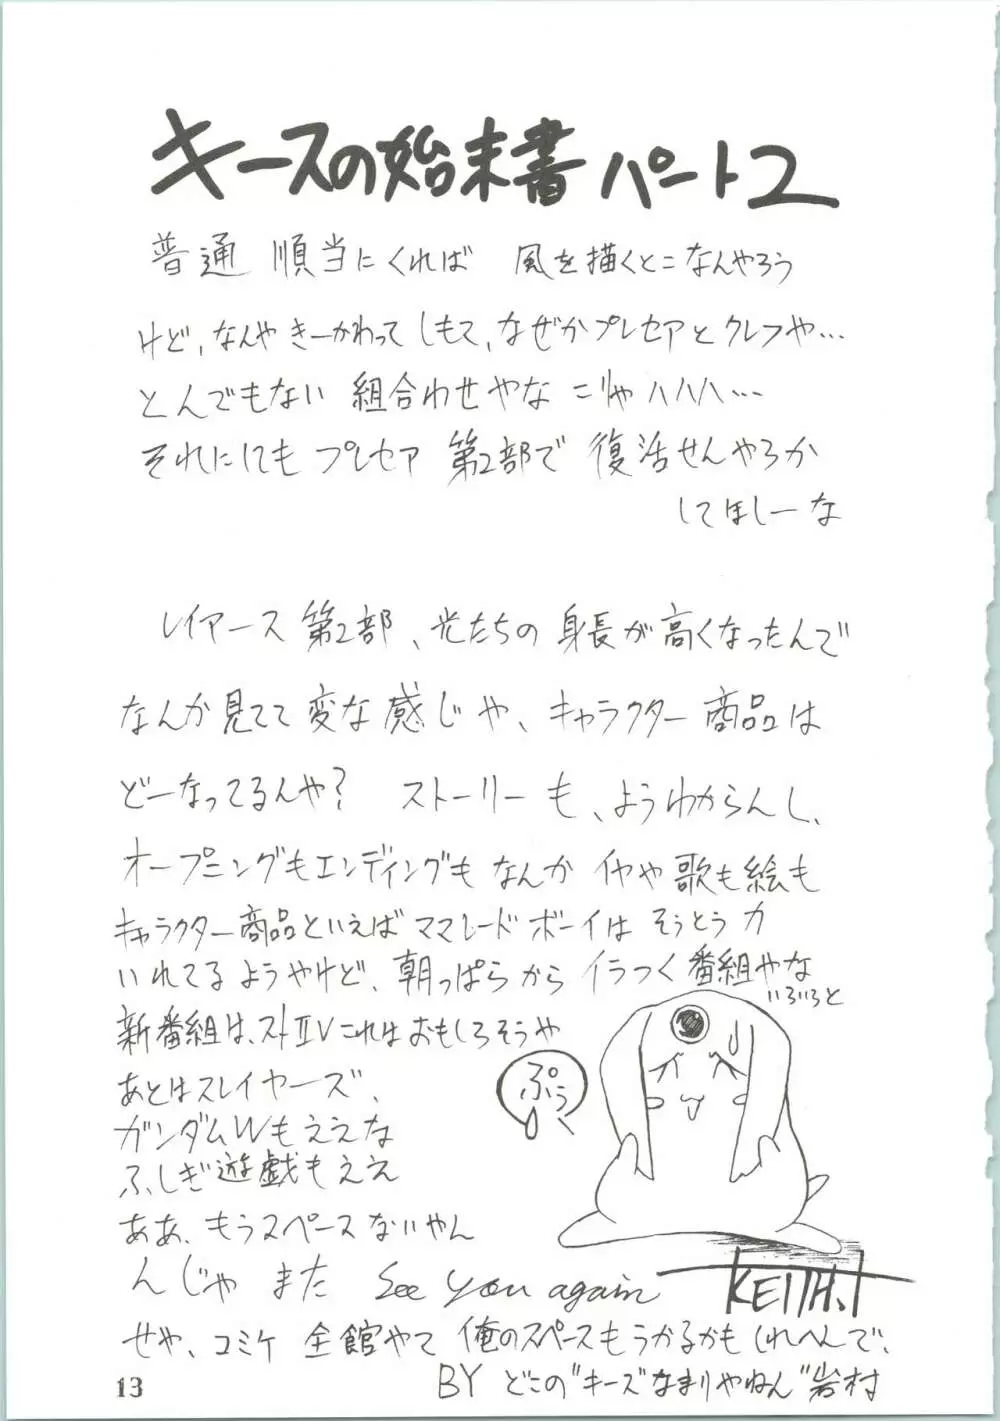 キースの始末書 パート2
普通 順当にくれば 風を描くとこなんやろう
けど、なんや きーかわってしもて、なぜかプレセアとクレフや…
とんでもない 組合わせやな こりゃ ハハハ…
それにしても プレセア 第2部で 復活せんやろか
してほしーな
レイアース 第2部、光たちの 身長が高くなったんで
なんか見てて 変な感じや、キャラクター商品は
どーなってるんや? ストーリーも、ようわからんし、
オープニングもエンディングも なんか イヤや 歌も絵も
キャラクター商品といえば ママレードボーイは そうとう力
いれてるようやけど、朝っぱらから イラつく番組やな
いろいろと
新番組は、ストⅡV これは おもしろそうや
あとはスレイヤーズ、
ガンダムWもええな
ふしぎ遊戯もええ
ああ、もうスペースないやん
ぷぅ〜
んじゃ また See you again
KEITH.I
せや、コミケ 全館やて 俺のスペースもうかるかもしれへんで、
BY どこの"キーズ"なまりやねん"岩村
13